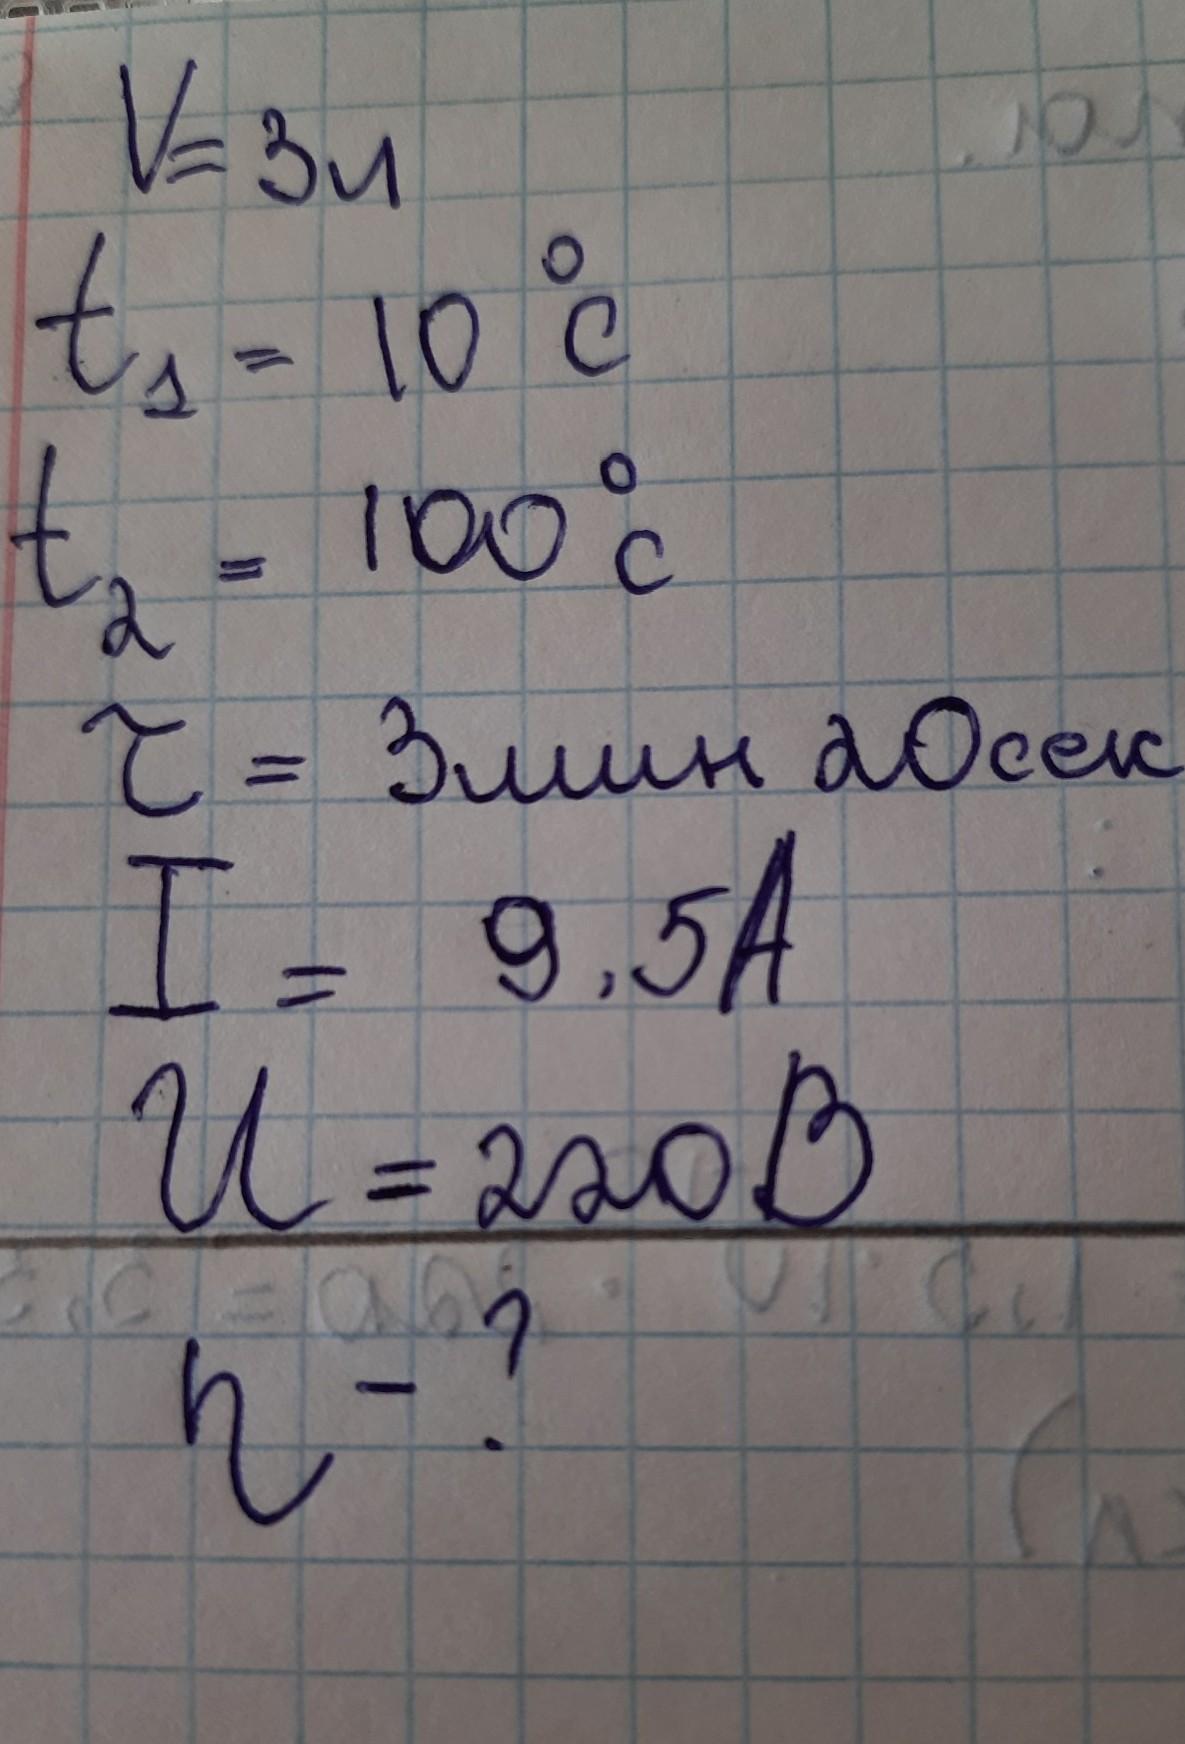 V= 3л
t₁ = 10 °C
t₂ = 100 °C
τ = 3мин 20сек
I = 9,5A
U = 220В
η - ?